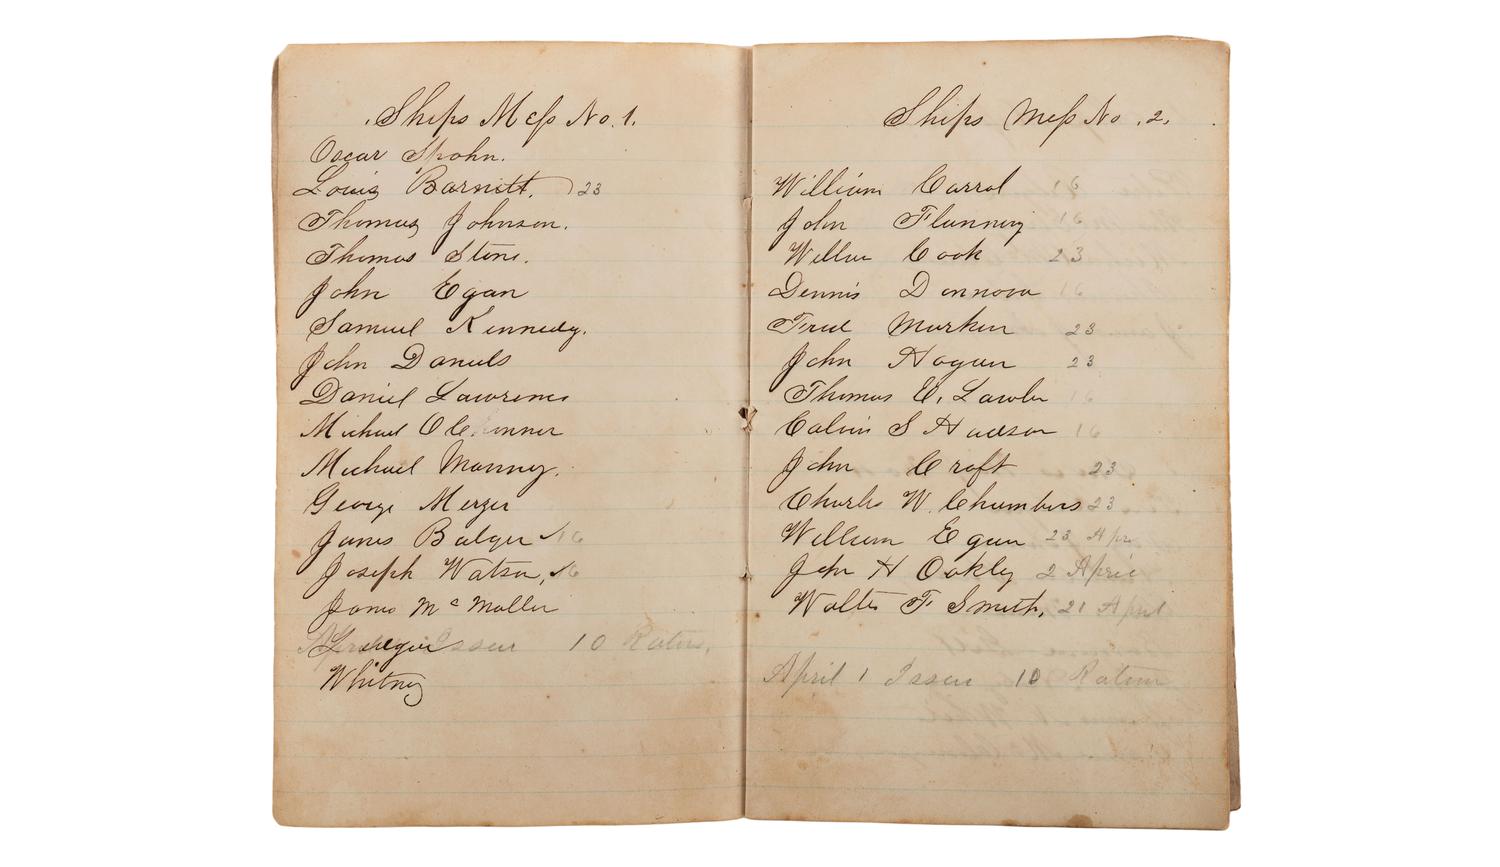 Ships Mess No. 1.
Oscar Spohn.
Louis Barnitt. 23
Thomas Johnson.
Thomas Stone.
John Egan
Samuel Kennedy.
John Daniels
Daniel Lawrence
Michael O Connor
Michael Manney.
George Merger
James Balger 16
Joseph Watson, 16
James Mc Moller
10 Rations,
Whitney
Ships Mess No. 2.
William Carrol 16
John Flanning 16
Wilbur Cook 23
Dennis Donnova 16
Fred Markin 23
John Hogan 23
Thomas E. Lawler 16
Calvin S Hudson 16
John Croft 23
Charles W. Chambers 23
William Egan 23 Apr
John H Oakley 2 April
Walter F Smith, 21 April
April 1 Issue 10 Rations